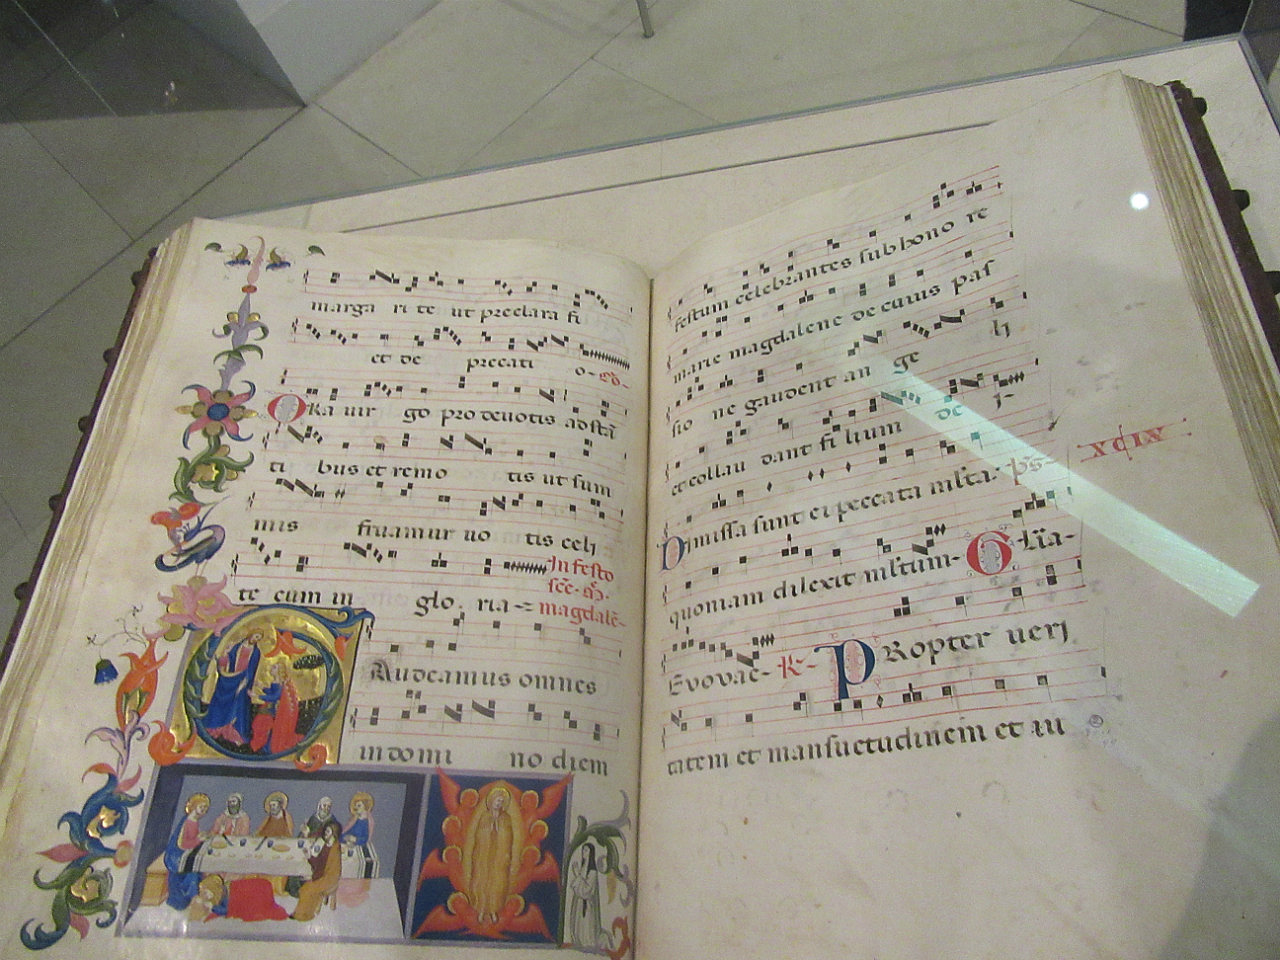 marga ri te ut preclara fi
et de precati o-
Ora uir go pro deuotis adsta
ti bus et remo tis ut sum
mis fruamur uo tis celi
In festo
te cum in glo ria magdale
Gaudeamus omnes
in domi no diem
festum celebrantes sub hono re
marie magdalene de cuius pas
sio ne gaudent an ge li
et collau dant fi lium de i
Dimissa sunt ei peccata mlta ps
XCIX
quoniam dilexit mltum Glia
Evovae Propter ueri
tatem et mansuetudinem et iu